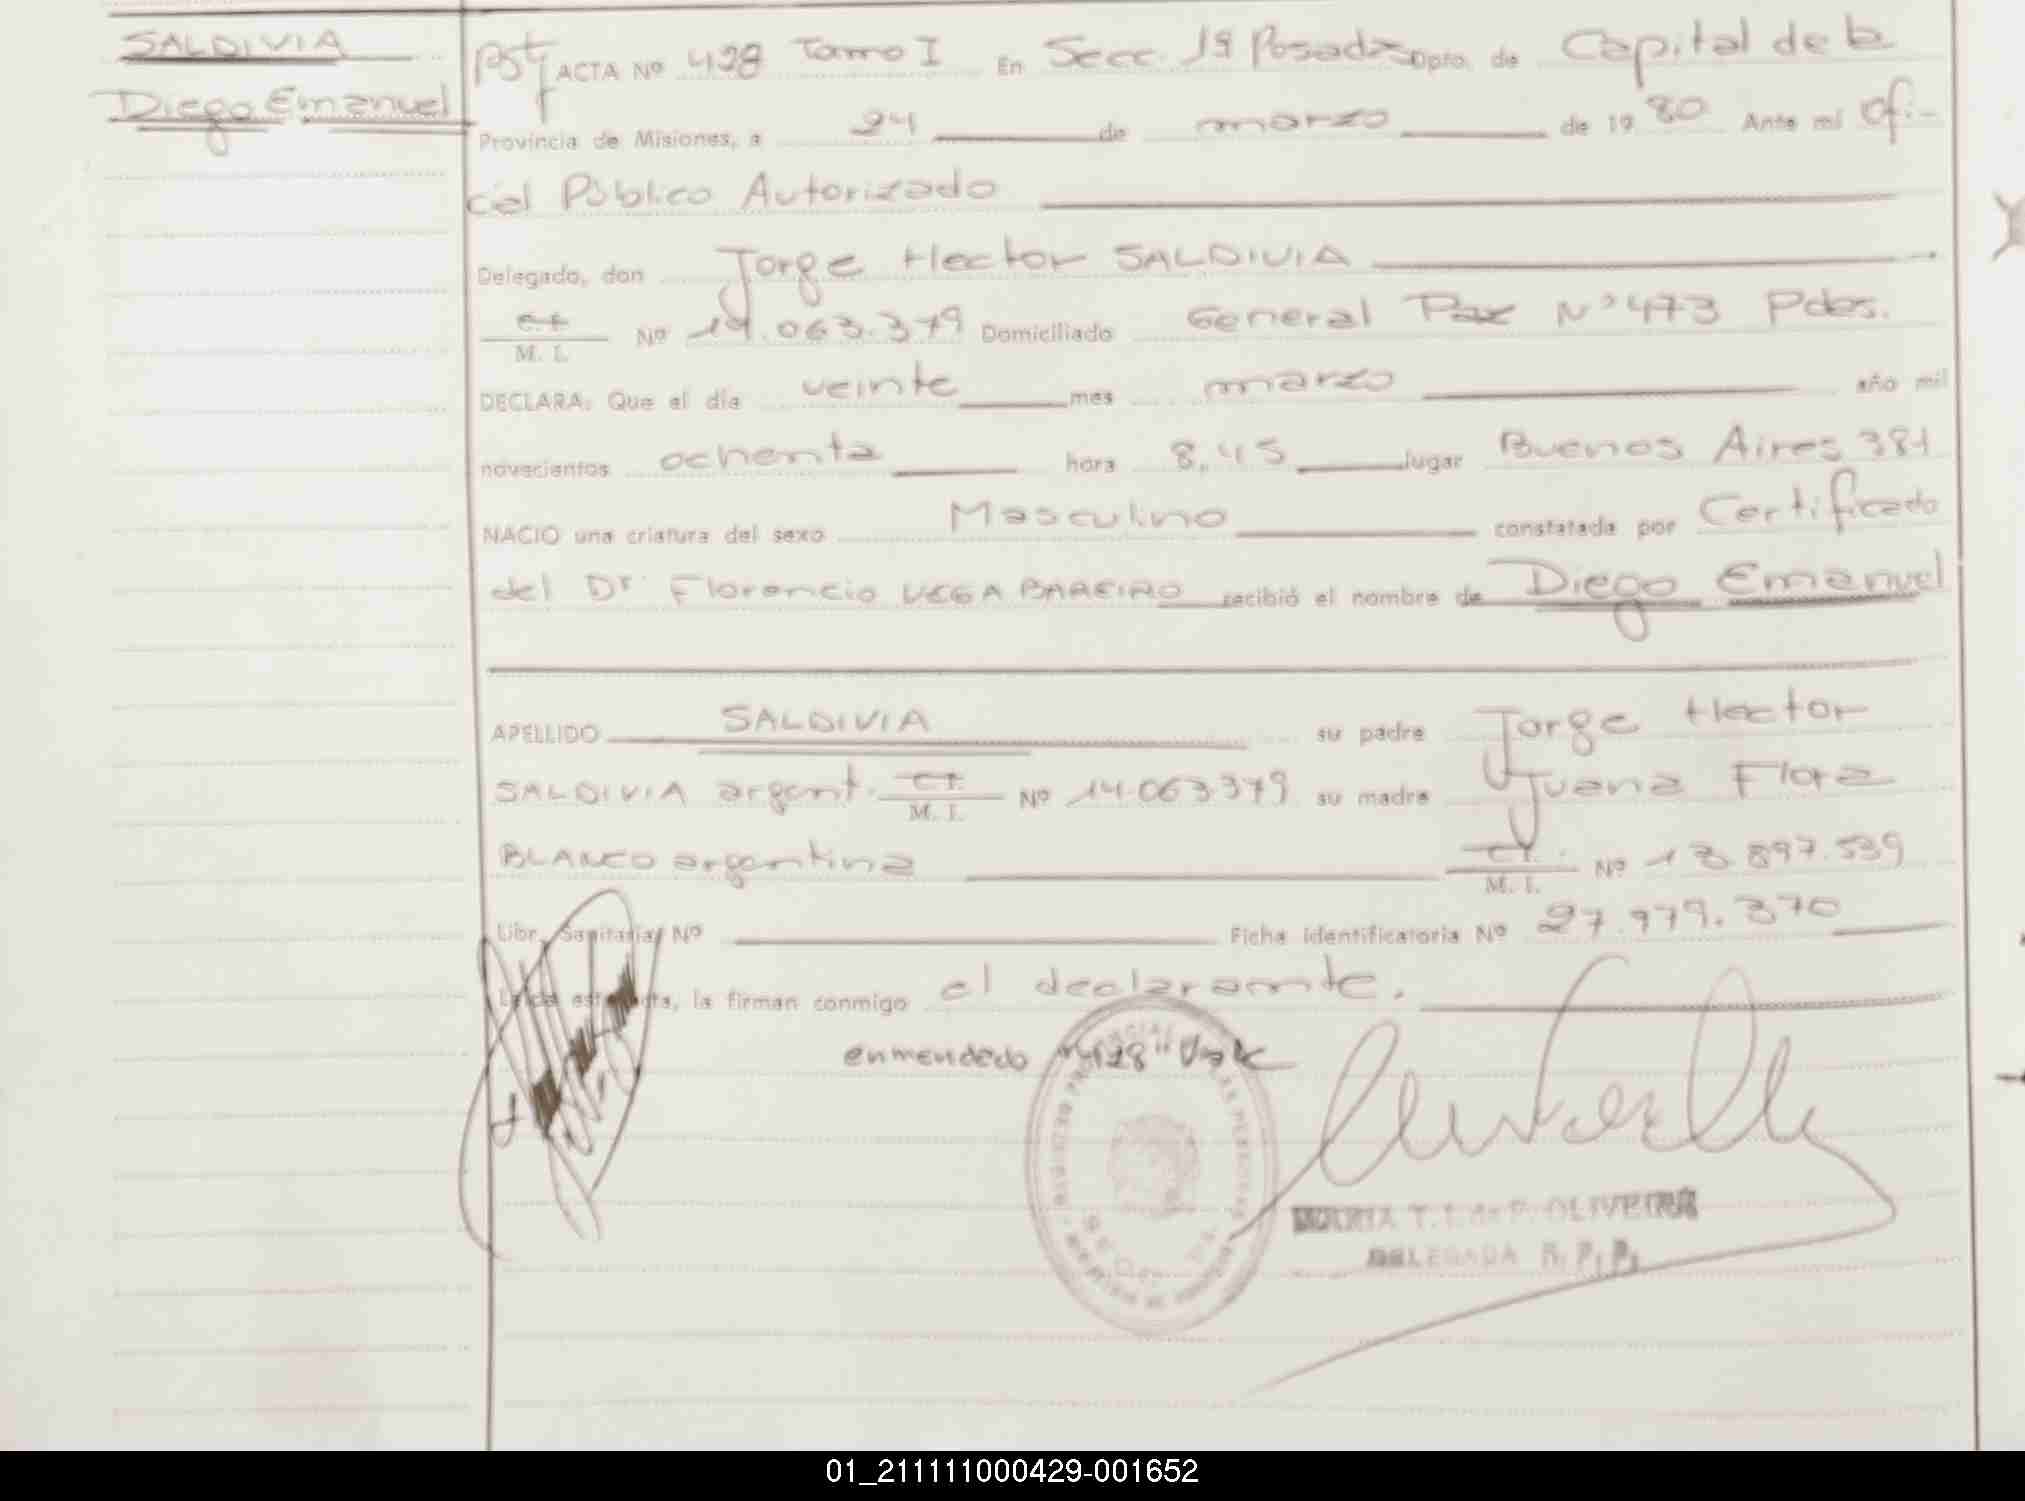 SALDIVIA
Diego Emanuel
ACTA Nº 428 Tomo I En Secc. 1ª Posadas Dpto. de Capital de la
Provincia de Misiones, a 24 de marzo de 1980 Ante mí ofi-
cial Público Autorizado
Delegado, don Jorge Hector SALDIVIA
C.I.
M. I. Nº 14.063.379 Domiciliado General Paz Nº 473 Pdas.
DECLARA: Que el día veinte mes marzo año mil
novecientos ochenta hora 8,45 lugar Buenos Aires 381
NACIO una criatura del sexo Masculino constatada por Certificado
del Dr Florencio VEGA BAREIRO recibió el nombre de Diego Emanuel
APELLIDO SALDIVIA su padre Jorge Hector
SALDIVIA argent. C.I.
M. I. Nº 14.063379 su madre Juana Flora
BLANCO argentina C.I.
M. I. Nº 13.897.539
Libr. Sanitaria Nº Ficha identificatoria Nº 27.979.370
Leída esta acta, la firman conmigo el declarante.
enmendado "428" Vale
MARIA T. I. de P. OLIVEIRA
DELEGADA R. P. P.
01_211111000429-001652